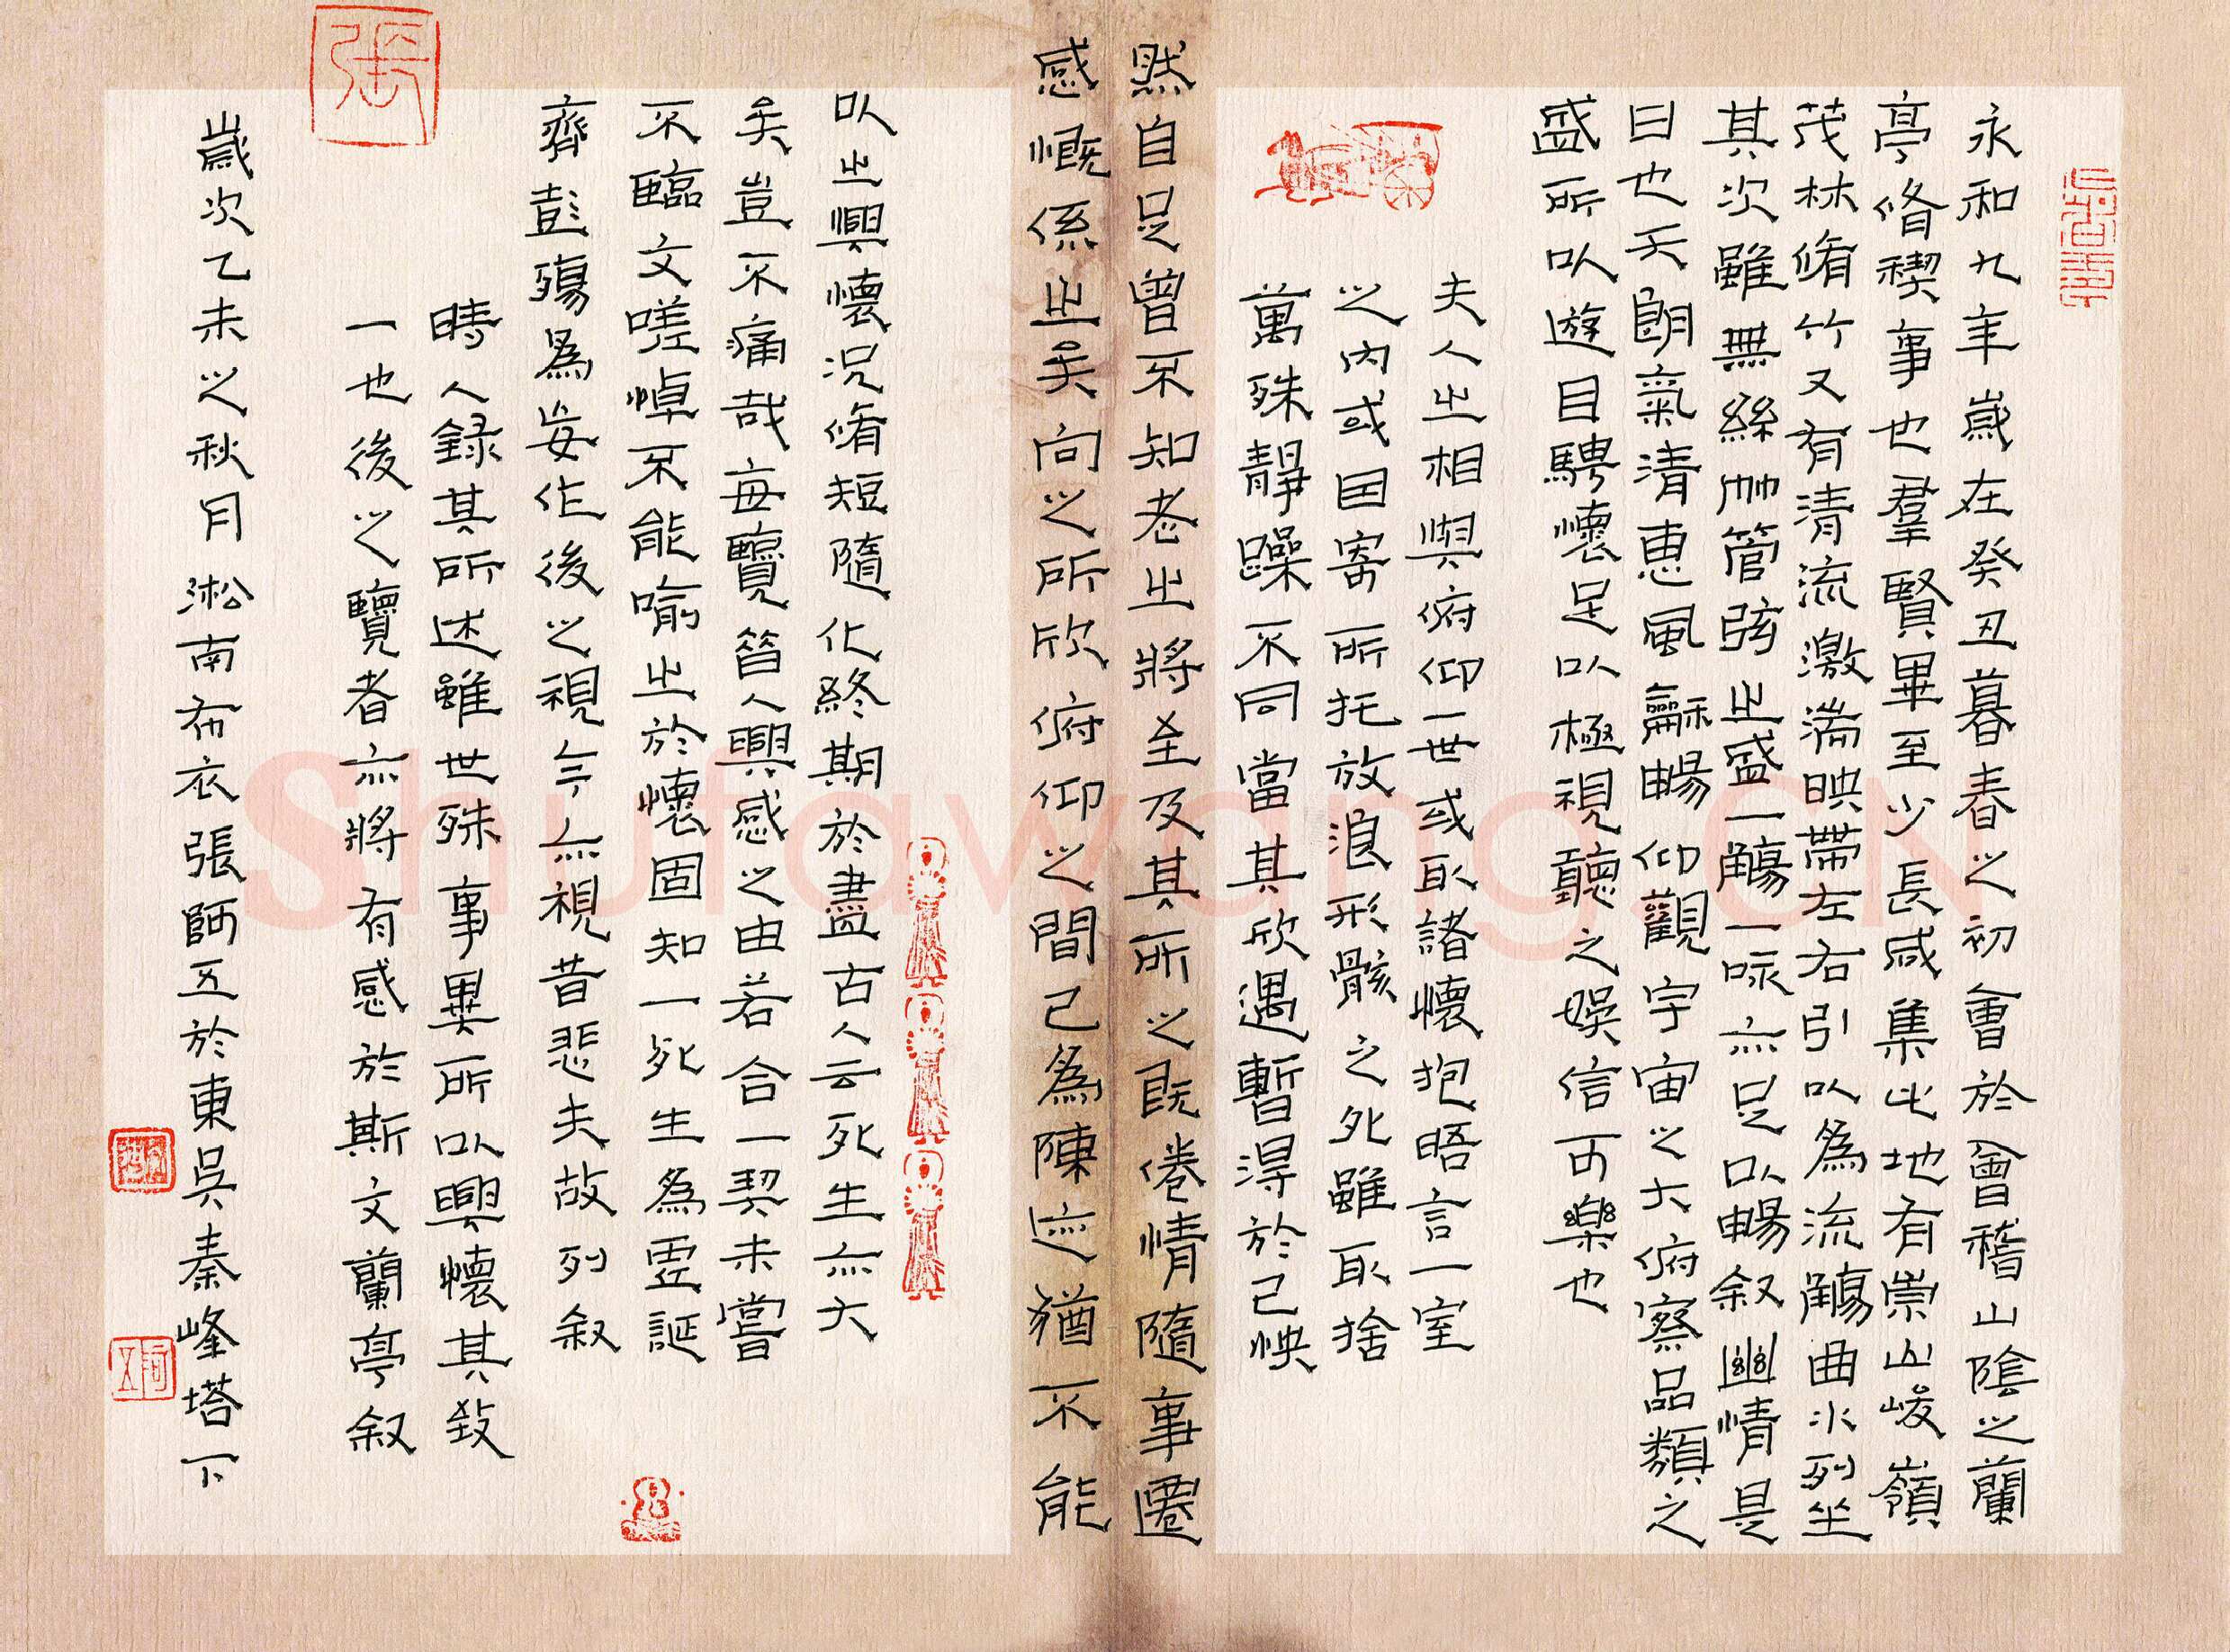 永和九年歲在癸丑暮春之初會於會稽山陰之蘭
亭脩禊事也羣賢畢至少長咸集此地有崇山峻嶺
茂林脩竹又有清流激湍映帶左右引以為流觴曲水列坐
其次雖無絲竹管弦之盛一觴一詠亦足以暢叙幽情是
日也天朗氣清惠風龢暢仰觀宇宙之大俯察品類之
盛所以遊目騁懷足以極視聽之娛信可樂也
夫人之相與俯仰一世或取諸懷抱晤言一室
之內或因寄所托放浪形骸之外雖取捨
萬殊靜躁不同當其欣遇暫得於己怏
然自足曾不知老之將至及其所之既倦情隨事遷
感慨係之矣向之所欣俯仰之間已為陳迹猶不能
以之興懷況脩短隨化終期於盡古人云死生亦大
矣豈不痛哉每覽昔人興感之由若合一契未嘗
不臨文嗟悼不能喻之於懷固知一死生為虛誕
齊彭殤為妄作後之視今亦視昔悲夫故列叙
時人錄其所述雖世殊事異所以興懷其致
一也後之覽者亦將有感於斯文蘭亭叙
張
歲次乙未之秋月淞南布衣張師五於東吳秦峰塔下
Shufawang.CN